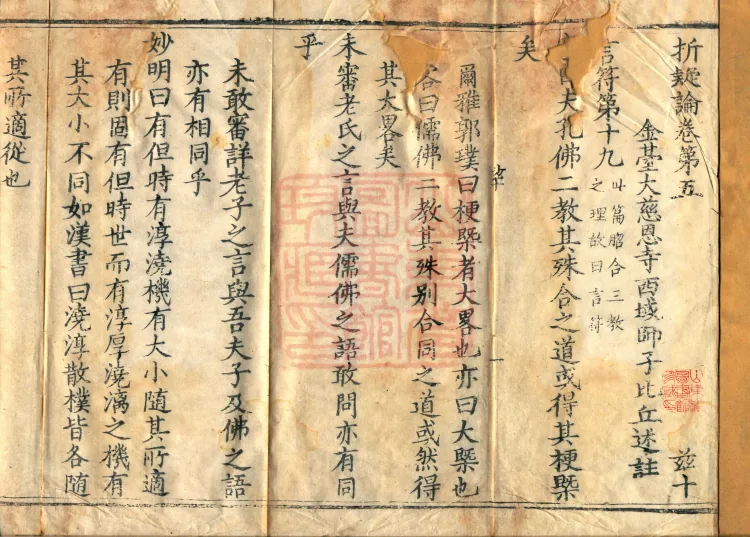 折疑論卷第五 茲十
金臺大慈恩寺西域師子比丘述註
言符第十九 此篇脗合三教
之理故曰言符
曰夫孔佛二教其殊合之道或得其梗槩
矣
爾雅郭璞曰梗槩者大畧也亦曰大槩也
答曰儒佛二教其殊别合同之道或然得
其大畧矣
未審老氏之言與夫儒佛之語敢問亦有同
乎
未敢審詳老子之言與吾夫子及佛之語
亦有相同乎
妙明曰有但時有淳澆機有大小隨其所適
有則固有但時世而有淳厚澆漓之機有
其大小不同如漢書曰澆淳散樸皆各隨
其所適從也